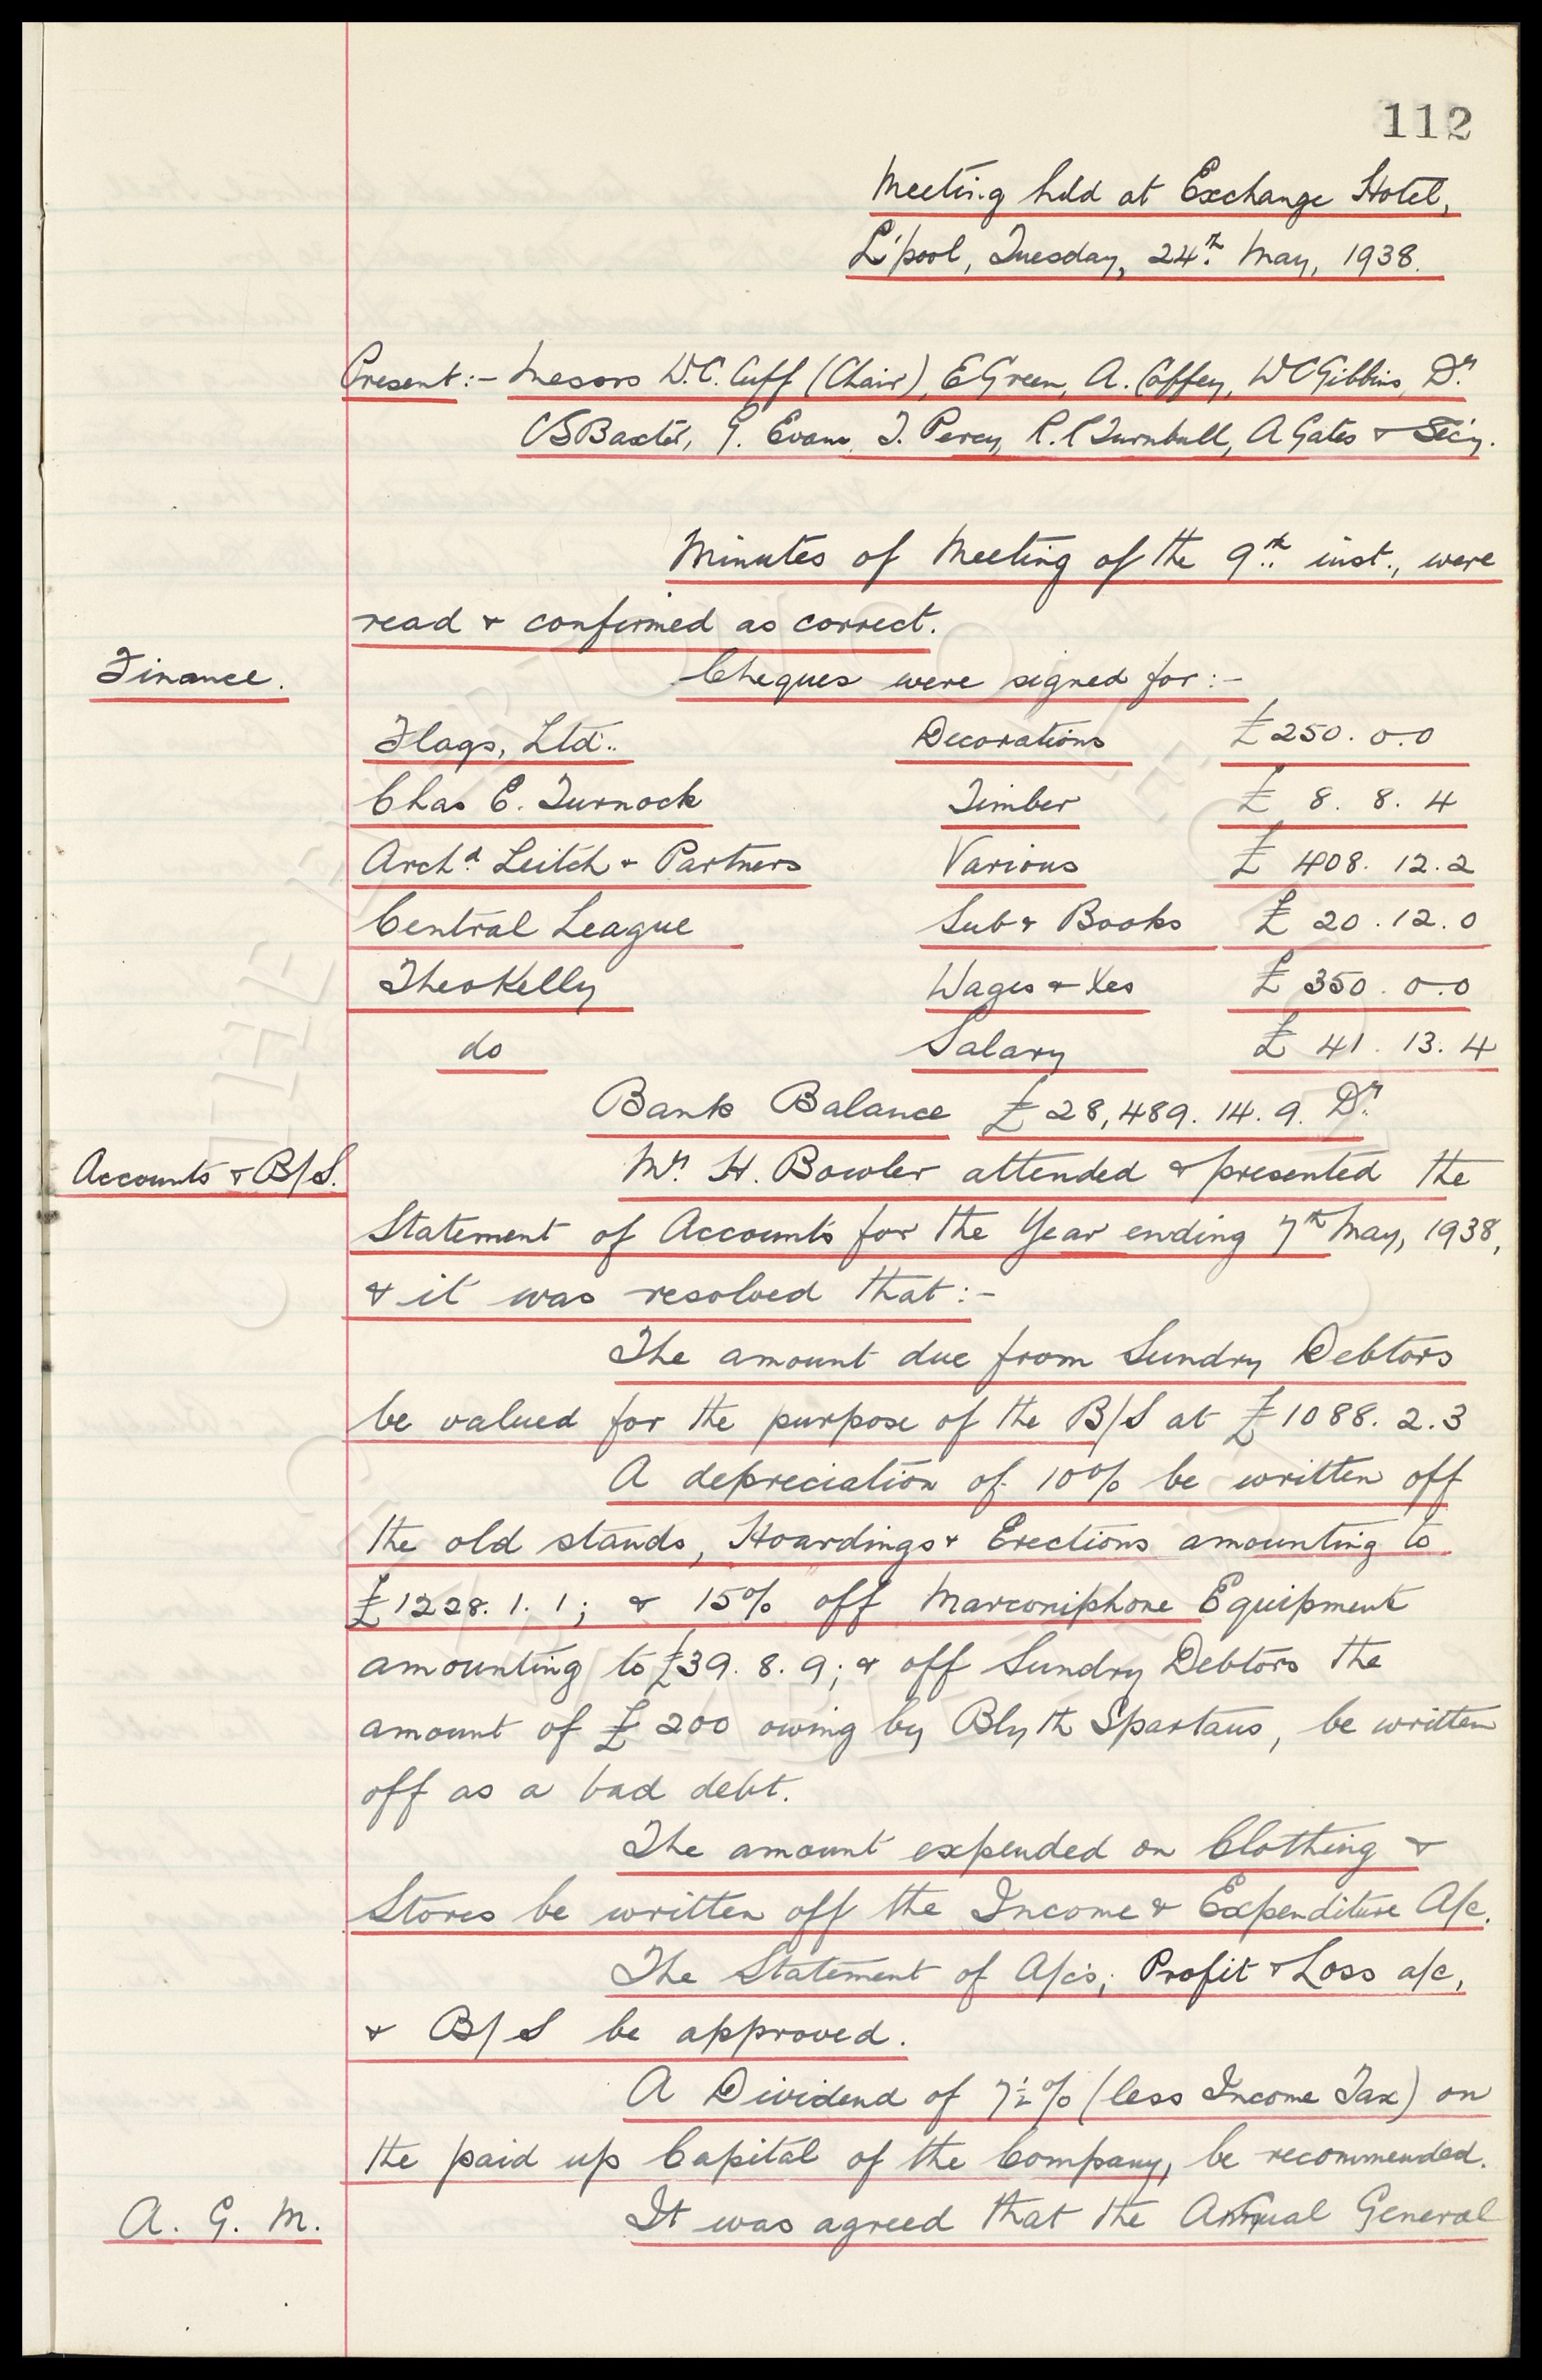 112
Meeting held at Exchange Hotel,
L'pool, Tuesday, 24th May, 1938.
Present:- Messrs W.C. Cuff (Chair), E Green, A. Coffey, W C Gibbins, Dr.
C S Baxter, G. Evans, T. Percy, R. C Turnbull, A Gates & Sec'y.
Minutes of Meeting of the 9th inst., were
read & confirmed as correct.
Finance.
Cheques were signed for:-
Flags, Ltd.. Decorations £250. 0.0
Chas E. Turnock Timber £ 8. 8. 4
Archd. Leitch & Partners Various £ 408. 12. 2
Central League Sub & Books £ 20. 12. 0
Theo Kelly Wages & Xes £ 350. 0.0
do Salary £ 41. 13. 4
Bank Balance £28,489. 14. 9. Dr.
Accounts & B/S.
Mr. H. Bowler attended & presented the
Statement of Accounts for the Year ending 7th May, 1938,
& it was resolved that:-
The amount due from Sundry Debtors
be valued for the purpose of the B/S at £1088. 2. 3
A depreciation of 10% be written off
the old stands, Hoardings & Erections amounting to
£1228. 1. 1; & 15% off Marconiphone Equipment
amounting to £39. 8. 9; & off Sundry Debtors the
amount of £200 owing by Blyth Spartans, be written
off as a bad debt.
The amount expended on Clothing &
Stores be written off the Income & Expenditure A/c.
The Statement of A/cs; Profit & Loss a/c,
& B/S be approved.
A Dividend of 7½% (less Income Tax) on
the paid up Capital of the Company, be recommended.
A. G. M.
It was agreed that the Annual General